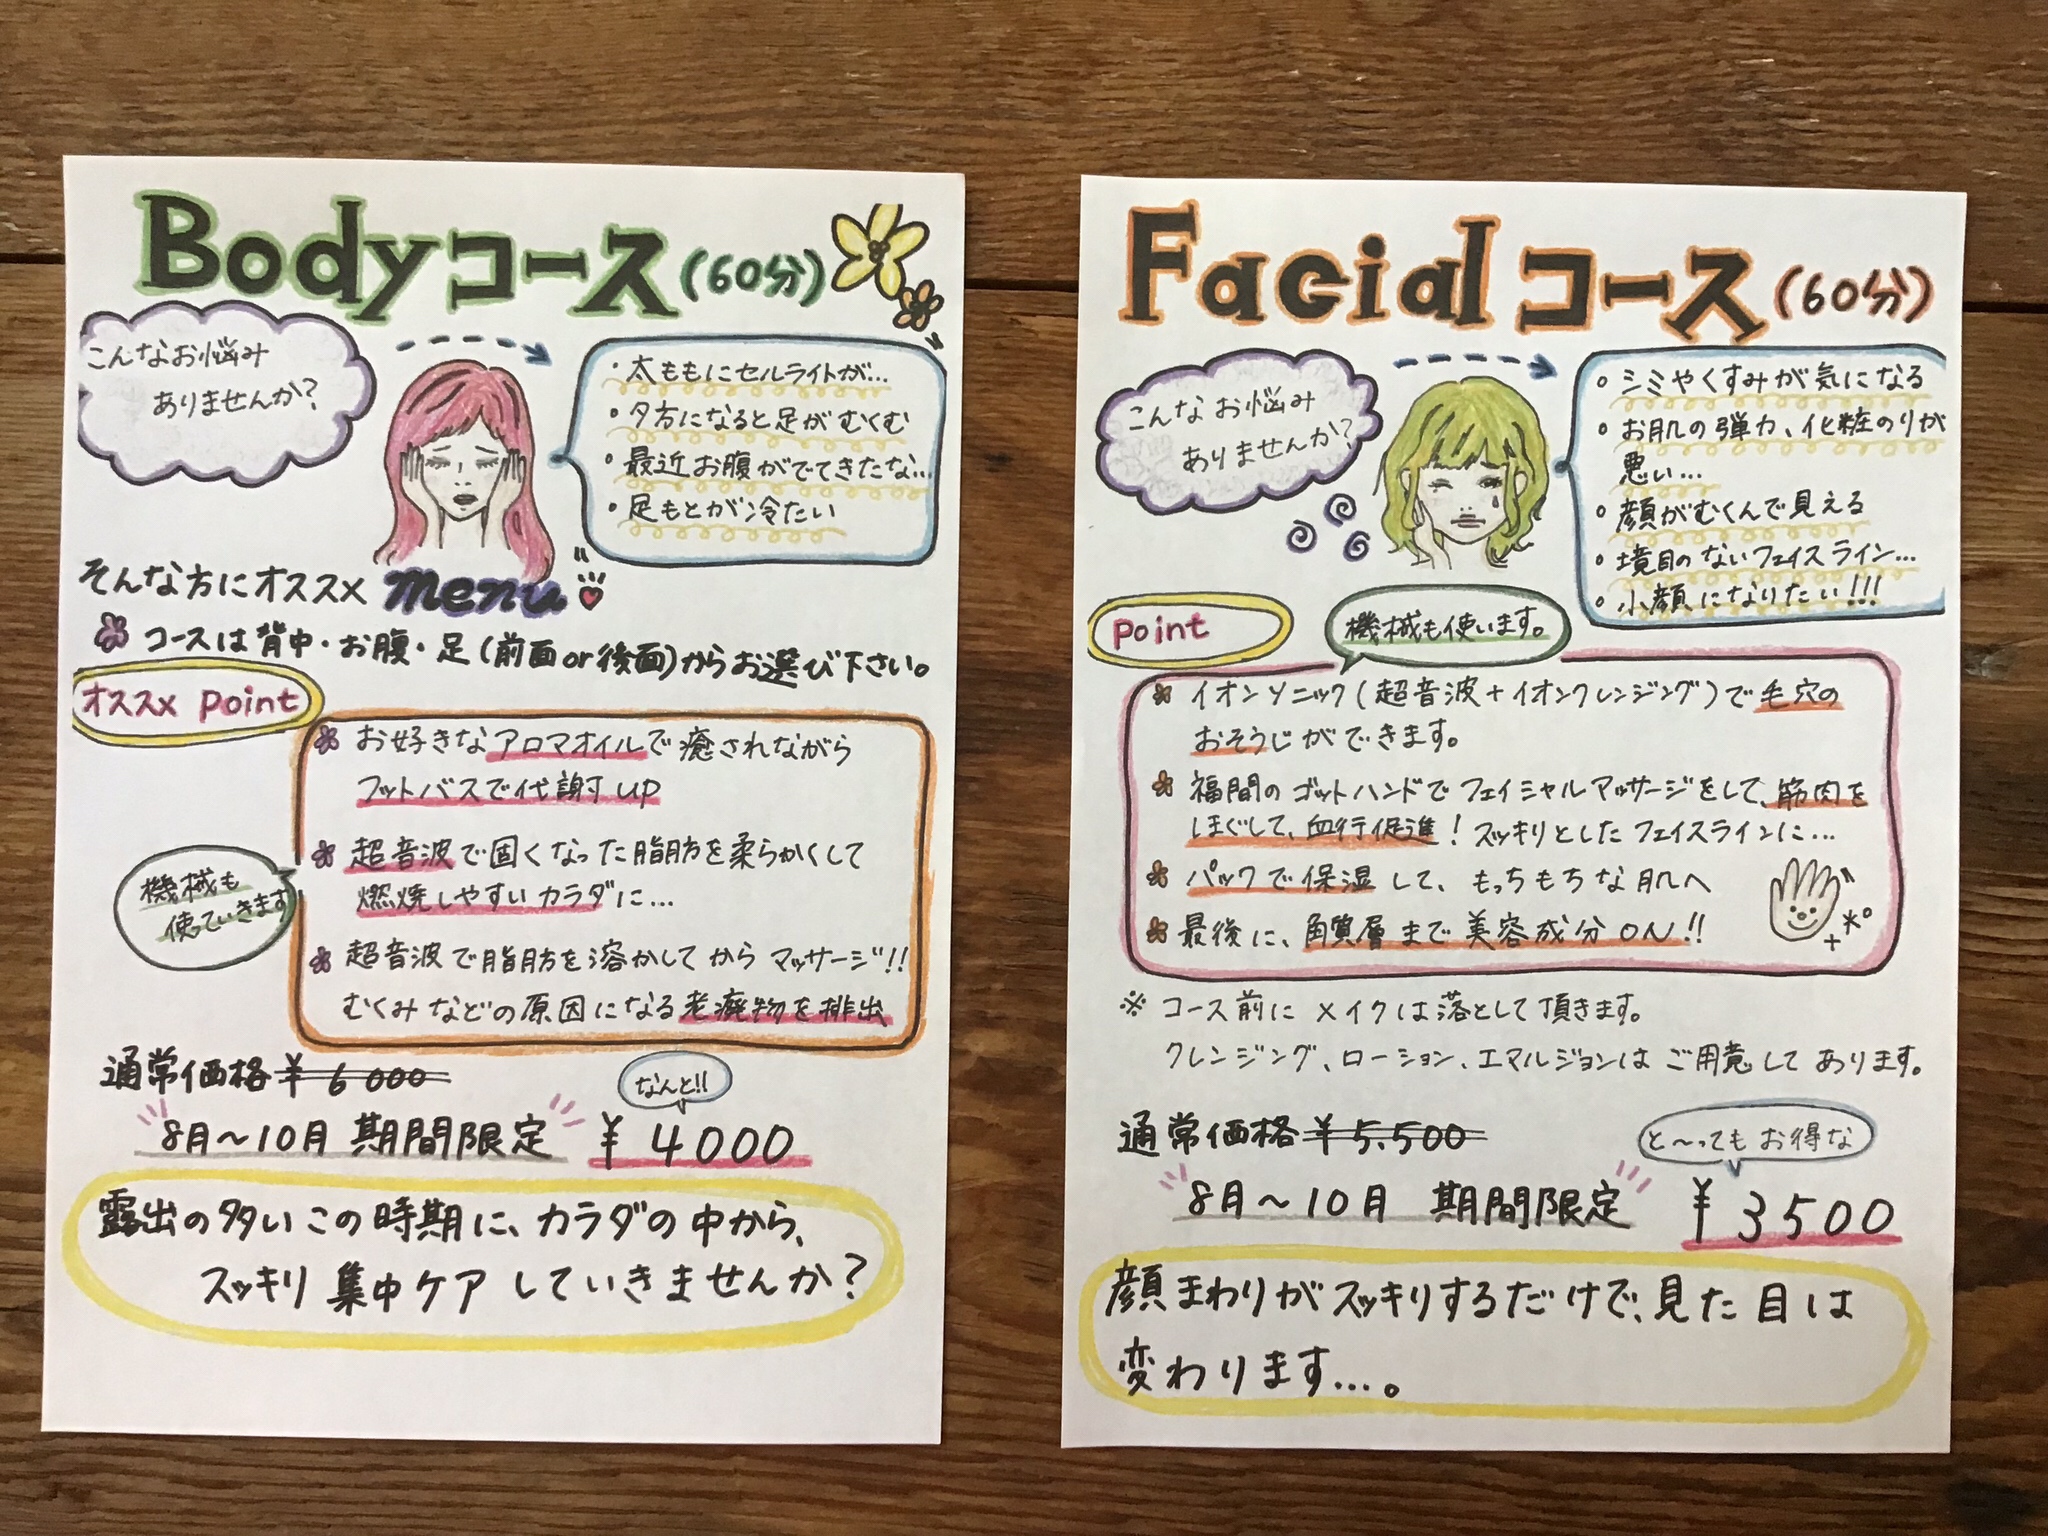 Bodyコース(60分)
こんなお悩み
ありませんか?
・太ももにセルライトが…
・夕方になると足がむくむ
・最近お腹がでてきたな…
・足もとが冷たい
そんな方にオススメ menu
コースは背中・お腹・足(前面or後面)からお選び下さい。
オススメ point
お好きなアロマオイルで癒されながら
フットバスで代謝up
超音波で固くなった脂肪を柔らかくして
燃焼しやすいカラダに…
機械も
使っていきます
超音波で脂肪を溶かしてからマッサージ!!
むくみなどの原因になる老廃物を排出
通常価格 ¥6000
なんと!!
8月〜10月 期間限定 ¥4000
露出の多いこの時期に、カラダの中から、
スッキリ集中ケアしていきませんか?
Facialコース(60分)
こんなお悩み
ありませんか?
シミやくすみが気になる
お肌の弾力、化粧のりが
悪い…
顔がむくんで見える
境目のないフェイスライン…
小顔になりたい!!!
point
機械も使います。
イオンソニック(超音波+イオンクレンジング)で毛穴の
おそうじができます。
福間のゴットハンドでフェイシャルマッサージをして、筋肉を
ほぐして、血行促進!スッキリとしたフェイスラインに…
パックで保湿して、もっちもちな肌へ
最後に、角質層まで美容成分ON!!
※コース前にメイクは落として頂きます。
クレンジング、ローション、エマルジョンはご用意してあります。
通常価格 ¥5.500
と〜ってもお得な
8月〜10月 期間限定 ¥3500
顔まわりがスッキリするだけで、見た目は
変わります…。